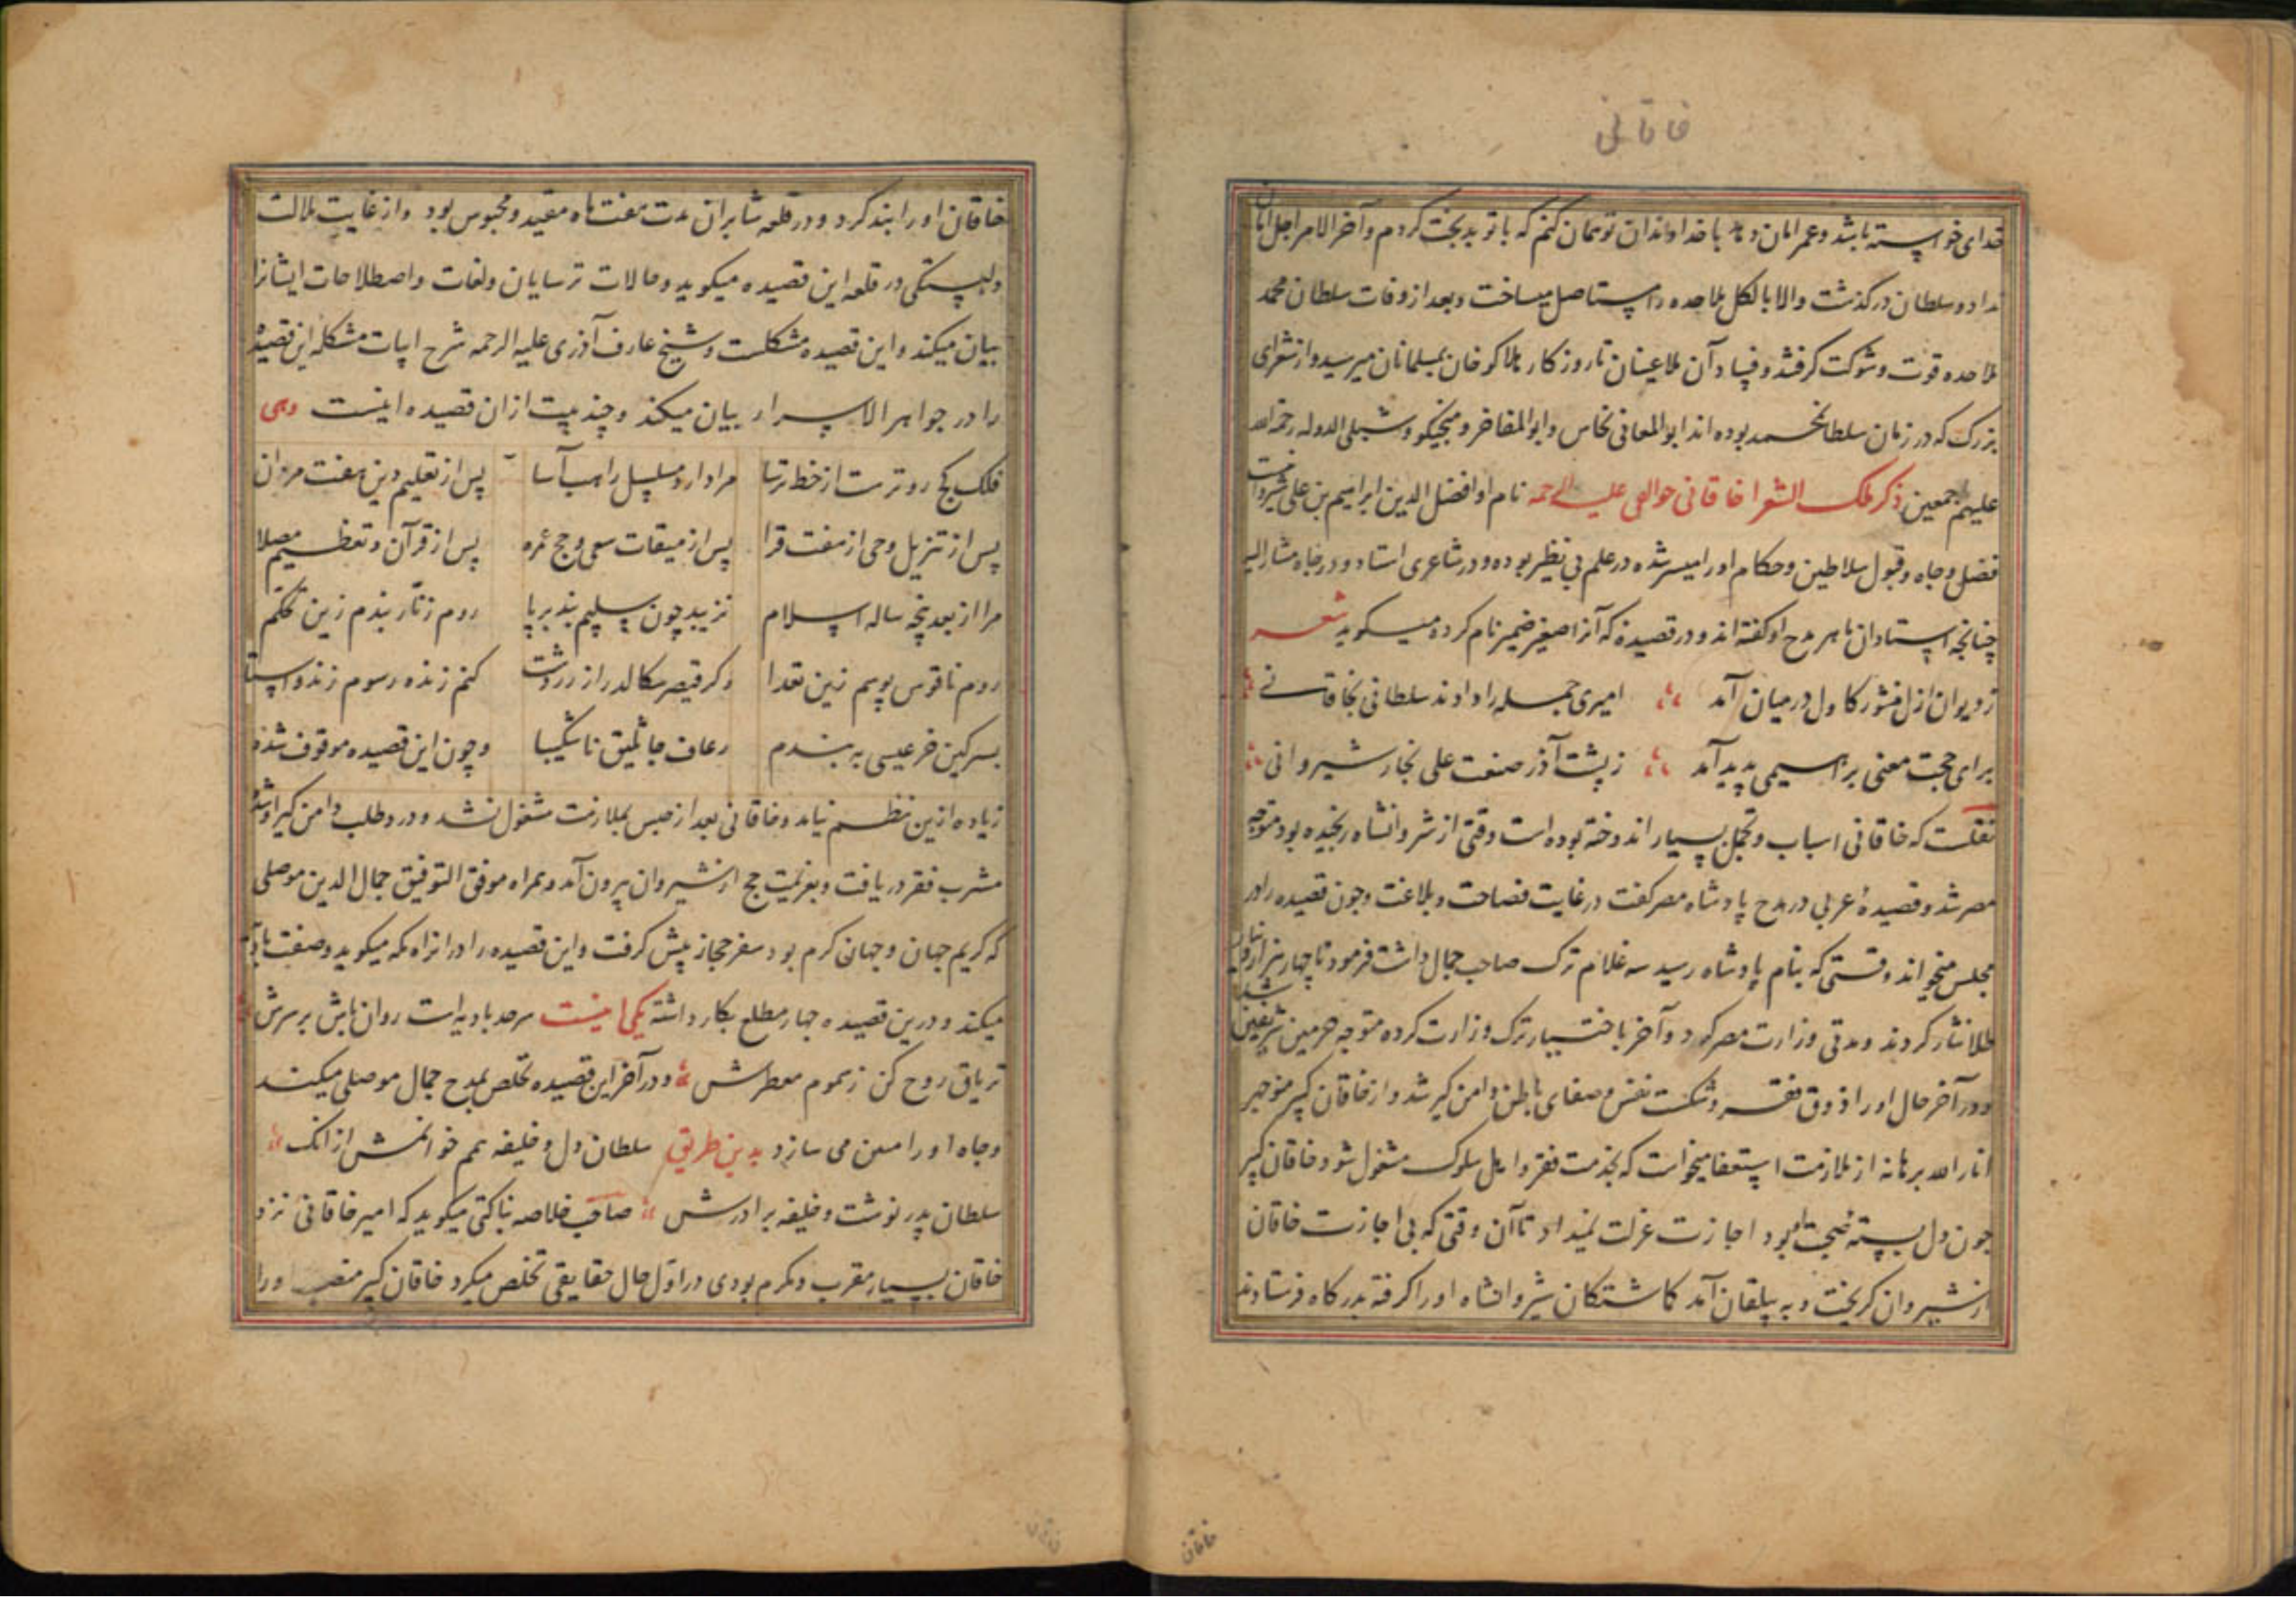 خاقانی
خدای خواسته باشد و عمر امان دهد با خداوندان تو همان کنم که با تو بدبخت کردم و آخر الامر اجل امان
نداد و سلطان درگذشت و الا بالکل ملاحده را مستاصل میساخت و بعد از وفات سلطان محمد
ملاحده قوت و شوکت کرفتند و فساد آن ملاعینان تا روزکار هلاکو خان بمسلمانان میرسید و از شعرای
بزرک که در زمان سلطان محمد بوده اند ابو المعالی نحاس و ابو المفاخر و منجیکو و شبلی الدوله رحمة الله
علیهم اجمعین ذکر ملک الشعرا خاقانی حوالقی علیه الرحمه نام او افضل الدین ابراهیم بن علی شیروانیست
فضل و جاه و قبول سلاطین و حکام او را میسر شده در علم بی نظیر بوده و در شاعری استاد و در جاه مشار الیه
چنانچه استادان ماهر مدح او کفته اند و در قصیده که آنرا صغیر ضمیر نام کرده میکوید شعر
ز دیوان ازل منشور کاول در میان آمد امیری جمله را دادند سلطانی بخاقانی
برای حجت معنی براهیمی پدید آمد ز پشت آذر صنعت علی نجار شیروانی
نقلست که خاقانی اسباب و تجمل بسیار اندوخته بوده است وقتی از شروانشاه رنجیده بود متوجه
مصر شد و قصیدهٔ عربی در مدح پادشاه مصر کفت در غایت فصاحت و بلاغت و چون قصیده را در
مجلس میخواند وقتی که بنام پادشاه رسید سه غلام ترک صاحب جمال داشت فرمود تا چهار هزار
طلا نثار کردند و مدتی وزارت مصر کرد و آخر باختیار ترک وزارت کرده متوجه حرمین شریفین شد
و در آخر حال او را ذوق فقر و شکست نفس و صفای باطن دامن کیر شد و از خاقان کبیر منوچهر
انار الله برهانه از ملازمت استعفا میخواست که بخدمت فقر و اهل سلوک مشغول شود خاقان کبیر
چون دل بسته صحبت او بود اجازت عزلت نمیداد تا آن وقتی که بی اجازت خاقان
از شیروان کریخت و به بیلقان آمد کماشتکان شیروانشاه او را کرفته بدرکاه فرستادند
خاقان
خاقان او را بند کرد و در قلعه شابران مدت هفت ماه مقید و محبوس بود و از غایت ملالت
و لبستکی در قلعه این قصیده میکوید و حالات ترسایان و لغات و اصطلاحات ایشانرا
بیان میکند و این قصیده مشکلست و شیخ عارف آذری علیه الرحمه شرح ابیات مشکله این قصیده
را در جواهر الاسرار بیان میکند و چند بیت از ان قصیده اینست وهی
فلک کج رو ترست از خط ترسا مرا دارد مسلسل راهب آسا پس از تعلیم دین هفت مردان
پس از تنزیل وحی از هفت قرا پس از میقات سعی و حج عمره پس از قرآن و تعظیم مصلا
مرا از بعد پنجه ساله اسلام نزیبد چون صلیبم بند بر پا روم زنار بندم زین تحکم
روم ناقوس بوسم زین تعدا وکر قیصر سکالد راز زردشت کنم زنده رسوم زند و استا
بسرکین خر عیسی به بندم رعاف جاثلیق ناشکیبا و چون این قصیده موقوف شده
زیاده ازین نظم نیامد و خاقانی بعد از حبس بملازمت مشغول نشد و درد طلب دامن کیر او شد
مشرب فقر دریافت و بعزیمت حج از شیروان بیرون آمد و همراه موفق التوفیق جمال الدین موصلی
که کریم جهان و جهان کرم بود سفر حجاز پیش کرفت و این قصیده را در راه مکه میکوید و صفت بادیه
میکند و درین قصیده چهار مطلع بکار داشته یکی اینست سرحد بادیه است روان باش بر سرش
تریاق روح کن ز سموم معطرش و در آخر این قصیده تخلص بمدح جمال موصلی میکند
و جاه او را مبین می سازد بدین طریق سلطان دل و خلیفه همم خوانمش از انک
سلطان پدر نوشت و خلیفه برادرش صاحب خلاصه بناکتی میکوید که امیر خاقانی نزد
خاقان بسیار مقرب و مکرم بودی در اول حال حقایقی تخلص میکرد خاقان کبیر منصب او را